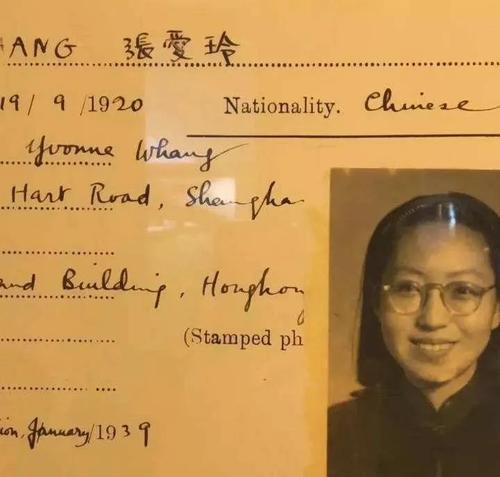 HANG 張愛玲
19/9/1920 Nationality. Chinese
Yvonne Whang
Hart Road, Shangha
and Building, Hongkong
(Stamped ph
ion, January/1939